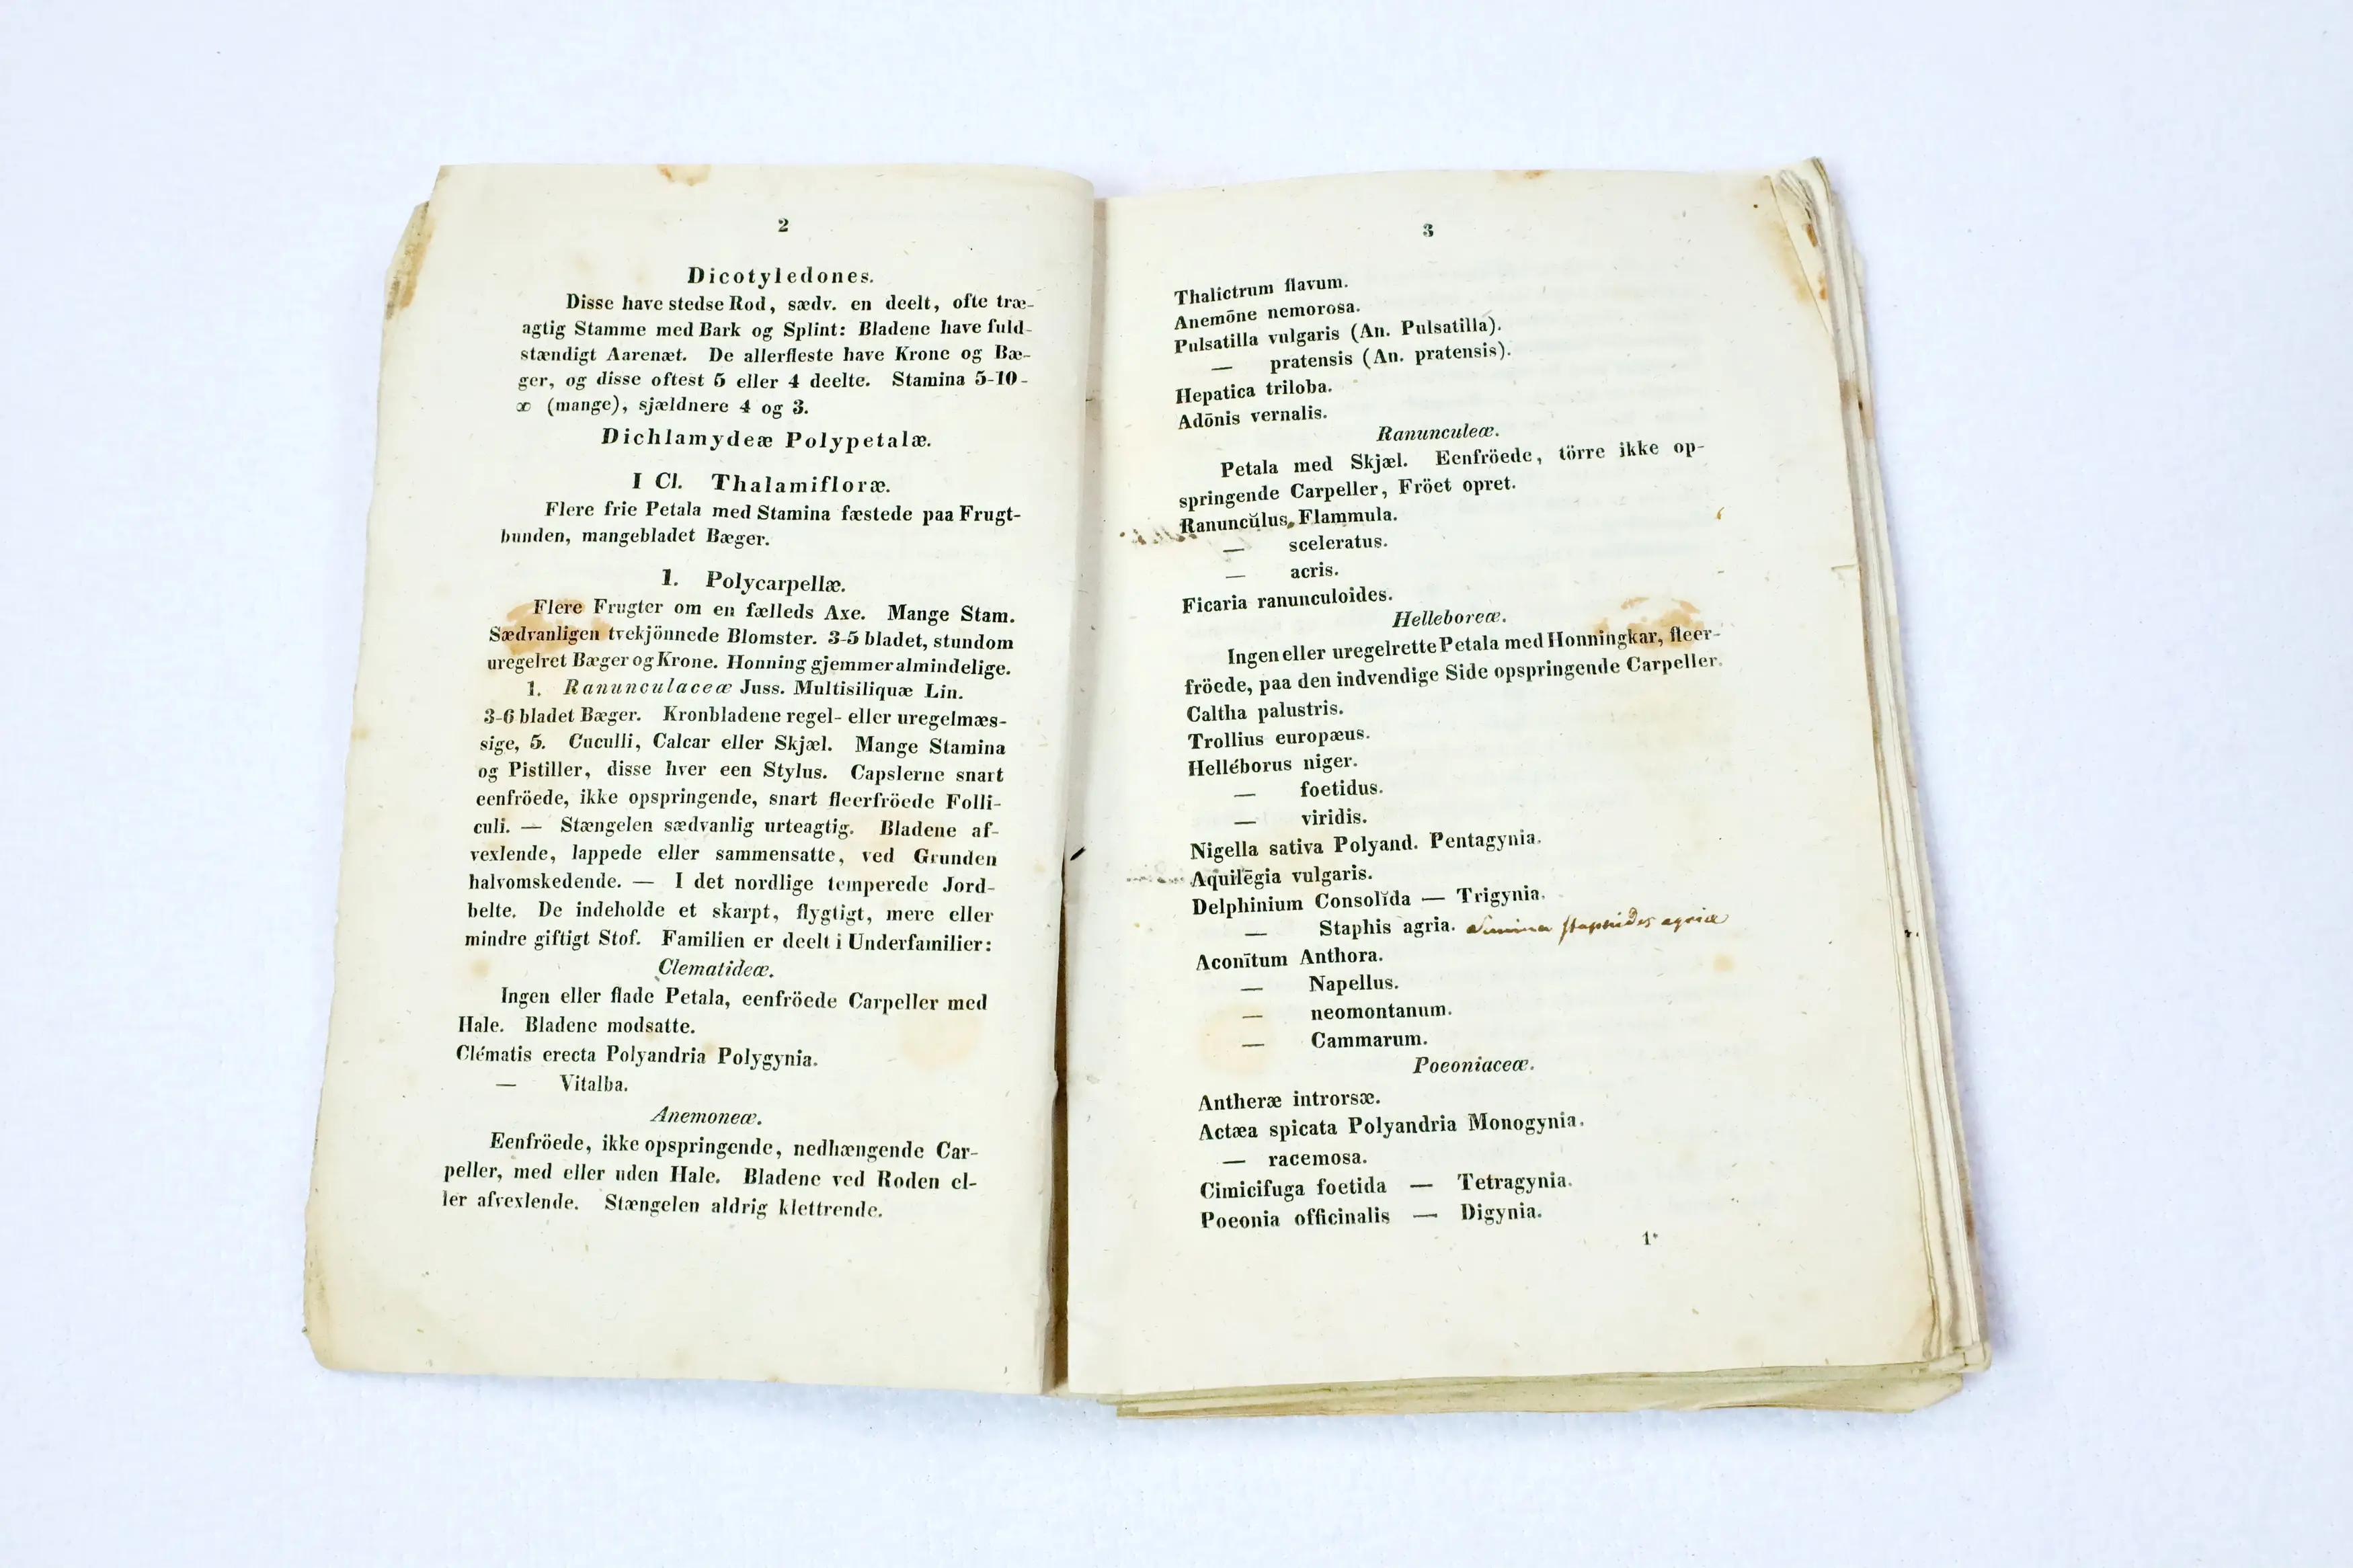 2
Dicotyledones.
Disse have stedse Rod, sædv. en deelt, ofte træ-
agtig Stamme med Bark og Splint: Bladene have fuld-
stændigt Aarenæt. De allerfleste have Krone og Bæ-
ger, og disse oftest 5 eller 4 deelte. Stamina 5-10-
∞ (mange), sjældnere 4 og 3.
Dichlamydeæ Polypetalæ.
I Cl. Thalamifloræ.
Flere frie Petala med Stamina fæstede paa Frugt-
bunden, mangebladet Bæger.
1. Polycarpellæ.
Flere Frugter om en fælleds Axe. Mange Stam.
Sædvanligen tvekjönnede Blomster. 3-5 bladet, stundom
uregelret Bæger og Krone. Honninggjemmer almindelige.
1. Ranunculaceæ Juss. Multisiliquæ Lin.
3-6 bladet Bæger. Kronbladene regel- eller uregelmæs-
sige, 5. Cuculli, Calcar eller Skjæl. Mange Stamina
og Pistiller, disse hver een Stylus. Capslerne snart
eenfröede, ikke opspringende, snart fleerfröede Folli-
culi. — Stængelen sædvanlig urteagtig. Bladene af-
vexlende, lappede eller sammensatte, ved Grunden
halvomskedende. — I det nordlige temperede Jord-
belte. De indeholde et skarpt, flygtigt, mere eller
mindre giftigt Stof. Familien er deelt i Underfamilier:
Clematideæ.
Ingen eller flade Petala, eenfröede Carpeller med
Hale. Bladene modsatte.
Clématis erecta Polyandria Polygynia.
— Vitalba.
Anemoneæ.
Eenfröede, ikke opspringende, nedhængende Car-
peller, med eller uden Hale. Bladene ved Roden el-
ler afvexlende. Stængelen aldrig klettrende.
3
Thalictrum flavum.
Anemōne nemorosa.
Pulsatilla vulgaris (An. Pulsatilla).
— pratensis (An. pratensis).
Hepatica triloba.
Adōnis vernalis.
Ranunculeæ.
Petala med Skjæl. Eenfröede, törre ikke op-
springende Carpeller, Fröet opret.
Ranuncŭlus Flammula.
— sceleratus.
— acris.
Ficaria ranunculoides.
Helleboreæ.
Ingen eller uregelrette Petala med Honningkar, fleer-
fröede, paa den indvendige Side opspringende Carpeller.
Caltha palustris.
Trollius europæus.
Helléborus niger.
— foetidus.
— viridis.
Nigella sativa Polyand. Pentagynia.
Aquilēgia vulgaris.
Delphinium Consolĭda — Trigynia.
— Staphis agria. staphidis agriæ
Aconītum Anthora.
— Napellus.
— neomontanum.
— Cammarum.
Poeoniaceæ.
Antheræ introrsæ.
Actæa spicata Polyandria Monogynia.
— racemosa.
Cimicifuga foetida — Tetragynia.
Poeonia officinalis — Digynia.
1*